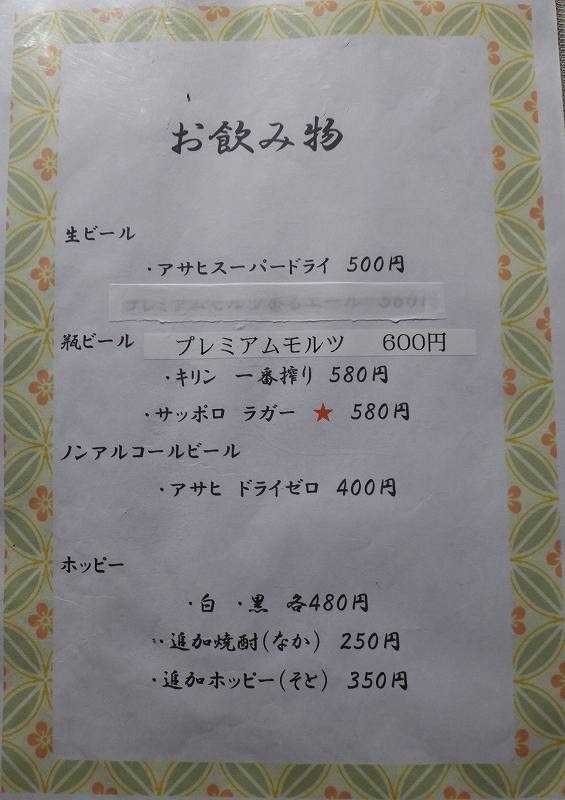 お飲み物
生ビール
・アサヒスーパードライ 500円
瓶ビール プレミアムモルツ 600円
・キリン 一番搾り 580円
・サッポロ ラガー ★ 580円
ノンアルコールビール
・アサヒ ドライゼロ 400円
ホッピー
・白 ・黒 各480円
・追加焼酎(なか) 250円
・追加ホッピー(そと) 350円